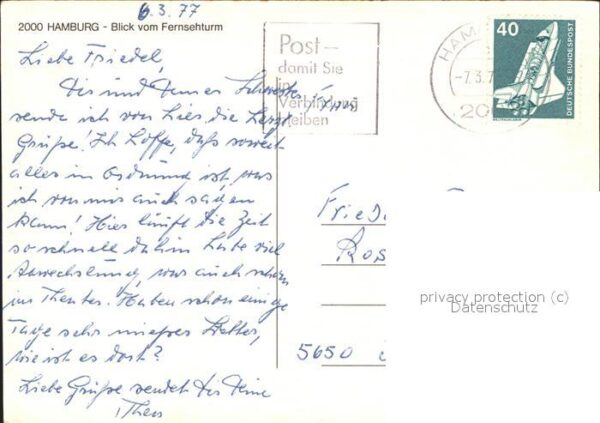 6.3.77
2000 HAMBURG - Blick vom Fernsehturm
Liebe Friedel,
Dir und Deiner Schwester
sende ich von hier die herzl.
Grüße! Ich hoffe, daß soweit
alles in Ordnung ist, was
ich von mir auch sagen
kann! Hier läuft die Zeit
so schnell dahin, habe viel
Abwechslung, war auch schon
im Theater. Haben schon einige
Tage sehr mieses Wetter,
wie ist es dort?
Liebe Grüße sendet Dir Deine
Post-
damit Sie
in
Verbindung
bleiben
HAM
-7.3.7
20
40
DEUTSCHE BUNDESPOST
Frau
Friede
Ros
5650
privacy protection (c)
Datenschutz